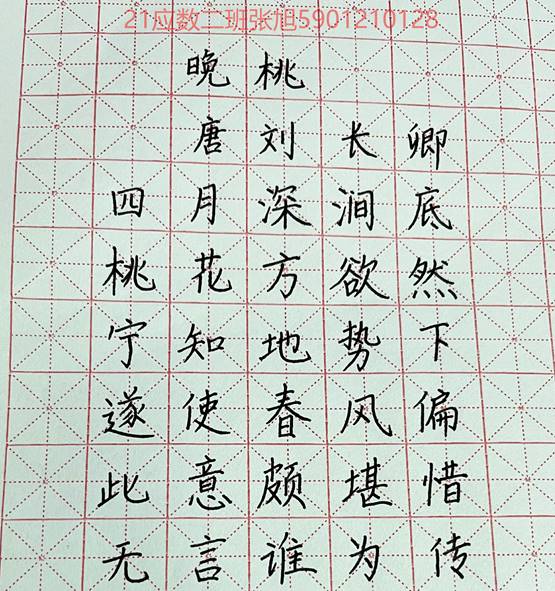 21应数二班张旭5901210128
晚桃
唐刘长卿
四月深涧底
桃花方欲然
宁知地势下
遂使春风偏
此意颇堪惜
无言谁为传